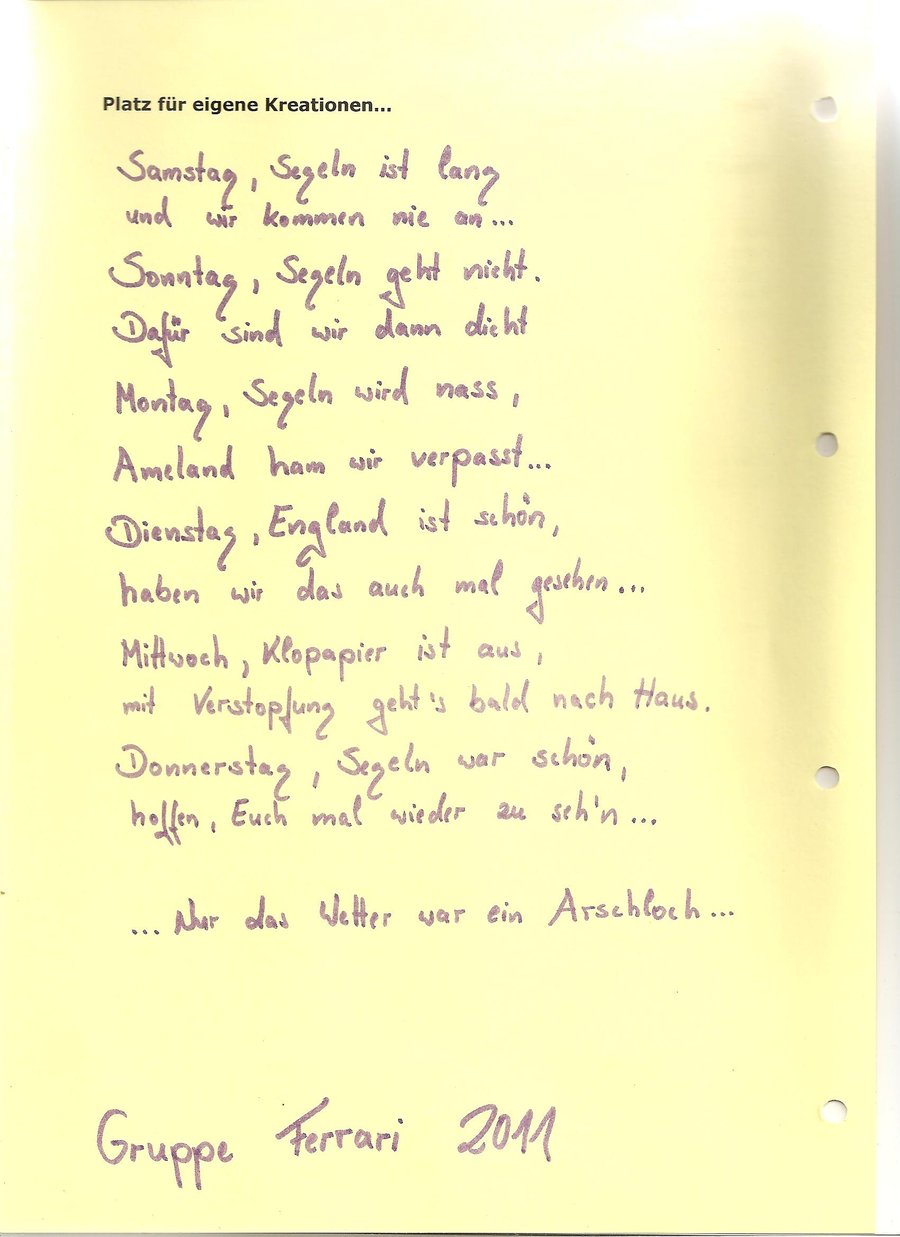 Platz für eigene Kreationen...
Samstag, Segeln ist lang
und wir kommen nie an...
Sonntag, Segeln geht nicht.
Dafür sind wir dann dicht
Montag, Segeln wird nass,
Ameland ham wir verpasst...
Dienstag, England ist schön,
haben wir das auch mal gesehen...
Mittwoch, Klopapier ist aus,
mit Verstopfung geht's bald nach Haus.
Donnerstag, Segeln war schön,
hoffen, Euch mal wieder zu seh'n...
...Nur das Wetter war ein Arschloch...
Gruppe Ferrari 2011